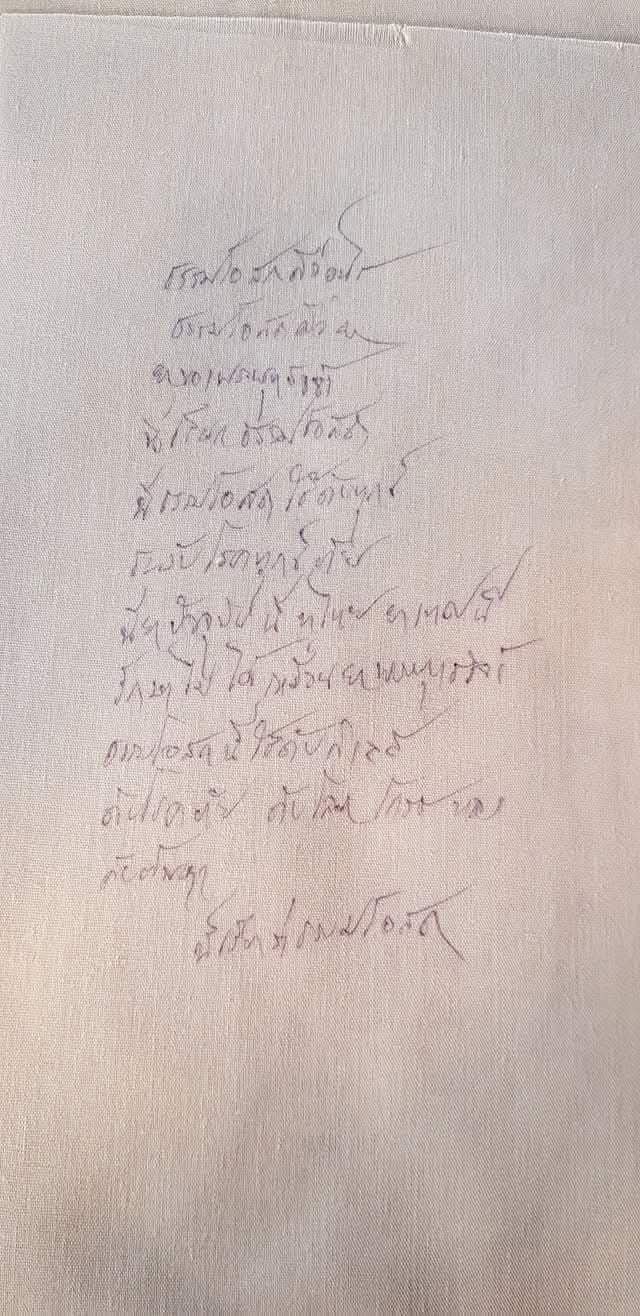 ธรรมโอสถคืออะไร
ธรรมโอสถคือยา
ยาของพระพุทธเจ้า
นี่เรียกธรรมโอสถ
นี่ธรรมโอสถใช้ดับทุกข์
ระงับโรคทุกข์ภัย
นี่ยาปัจจุบันนี้ ยาไทย ยาเทศนี่
รักษาไม่ได้เหมือนยาพระพุทธเจ้า
ธรรมโอสถนี้ใช้ดับกิเลส
ดับโรคภัย ดับโลภ โกรธ หลง
ดับตัณหา
นี่เรียกว่าธรรมโอสถ